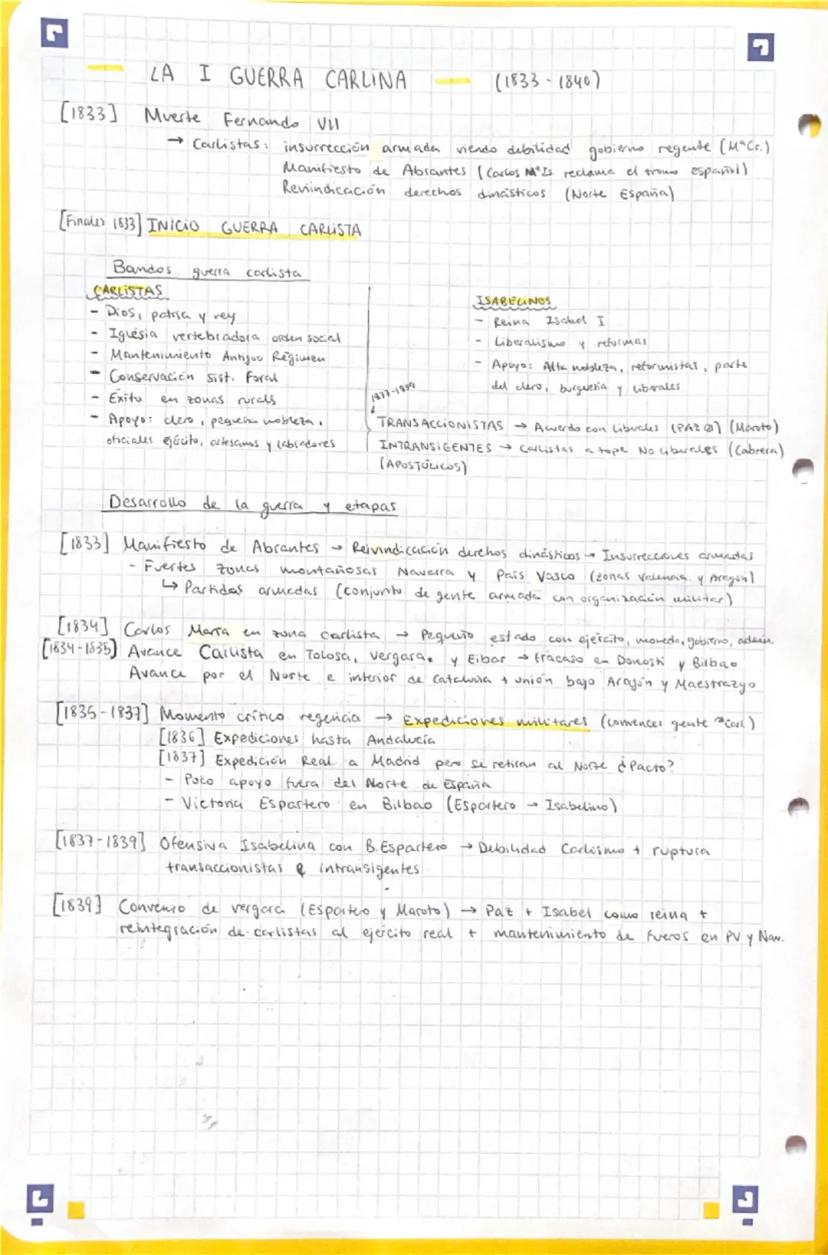 LA I GUERRA CARLINA (1833-1840)
[1833] Muerte Fernando VII
→ Carlistas: insurrección armada viendo debilidad gobierno regente (MªCr.)
Manifiesto de Abrantes (Carlos MªIs reclama el trono español)
Reivindicación derechos dinásticos (Norte España)
[Finales 1833] INICIO GUERRA CARLISTA
Bandos guerra carlista
CARLISTAS
- Dios, patria y rey
- Iglesia vertebradora orden social
- Mantenimiento Antiguo Régimen
- Conservación sist. Foral
- Éxito en zonas rurals
- Apoyo: clero, pequeña nobleza,
oficiales ejército, artesanos y labradores
ISABELINOS
- Reina Isabel I
- Liberalismo y reformas
- Apoyo: Alta nobleza, reformistas, parte
del clero, burguesía y liberales
1837-1839
TRANSACCIONISTAS → Acuerdo con liberales (PAZ) (Maroto)
INTRANSIGENTES → Carlistas a tope No liberales (Cabrera)
(APOSTÓLICOS)
Desarrollo de la guerra y etapas
[1833] Manifiesto de Abrantes → Reivindicación derechos dinásticos → Insurrecciones armadas
- Fuertes zonas montañosas Navarra y País Vasco (zonas Valencia y Aragón)
↳ Partidas armadas (conjunto de gente armada con organización militar)
[1834] Carlos María en zona carlista → Pequeño estado con ejército, moneda, gobierno, admin.
[1834-1835] Avance Carlista en Tolosa, Vergara, y Eibar → fracaso en Donosti y Bilbao
Avance por el Norte e interior de Cataluña + unión bajo Aragón y Maestrazgo
[1835-1837] Momento crítico regencia → Expediciones militares (convencer gente Carl)
[1836] Expediciones hasta Andalucía
[1837] Expedición Real a Madrid pero se retiran al Norte ¿Pacto?
- Poco apoyo fuera del Norte de España
- Victoria Espartero en Bilbao (Espartero → Isabelino)
[1837-1839] Ofensiva Isabelina con B.Espartero → Debilidad Carlismo + ruptura
transaccionistas e intransigentes
[1839] Convenio de Vergara (Espartero y Maroto) → Paz + Isabel como reina +
reintegración de carlistas al ejército real + mantenimiento de Fueros en PV y Nav.